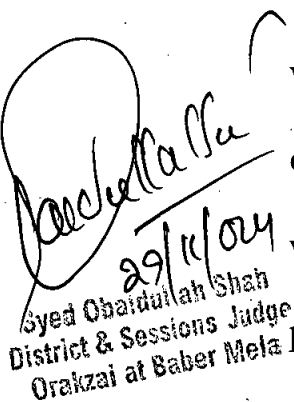 29/11/024
Syed Obaidullah Shah
District & Sessions Judge
Orakzai at Baber Mela